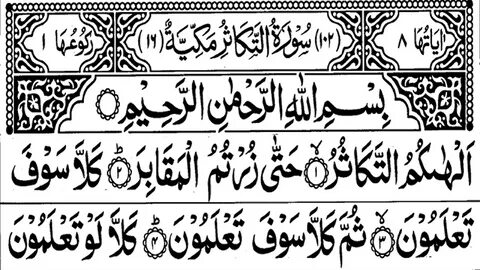 اٰیَاتُهَا ۸ (۱۰۲) سُوْرَةُ التَّكَاثُرِ مَكِّیَّةٌ (۱٦) رُكُوْعُهَا ۱
بِسْمِ اللّٰهِ الرَّحْمٰنِ الرَّحِیْمِ
اَلْهٰىكُمُ التَّكَاثُرُ ۙ‏﴿۱﴾ حَتّٰى زُرْتُمُ الْمَقَابِرَ ؕ‏﴿۲﴾ كَلَّا سَوْفَ
تَعْلَمُوْنَ ۙ‏﴿۳﴾ ثُمَّ كَلَّا سَوْفَ تَعْلَمُوْنَ ؕ‏﴿۴﴾ كَلَّا لَوْ تَعْلَمُوْنَ